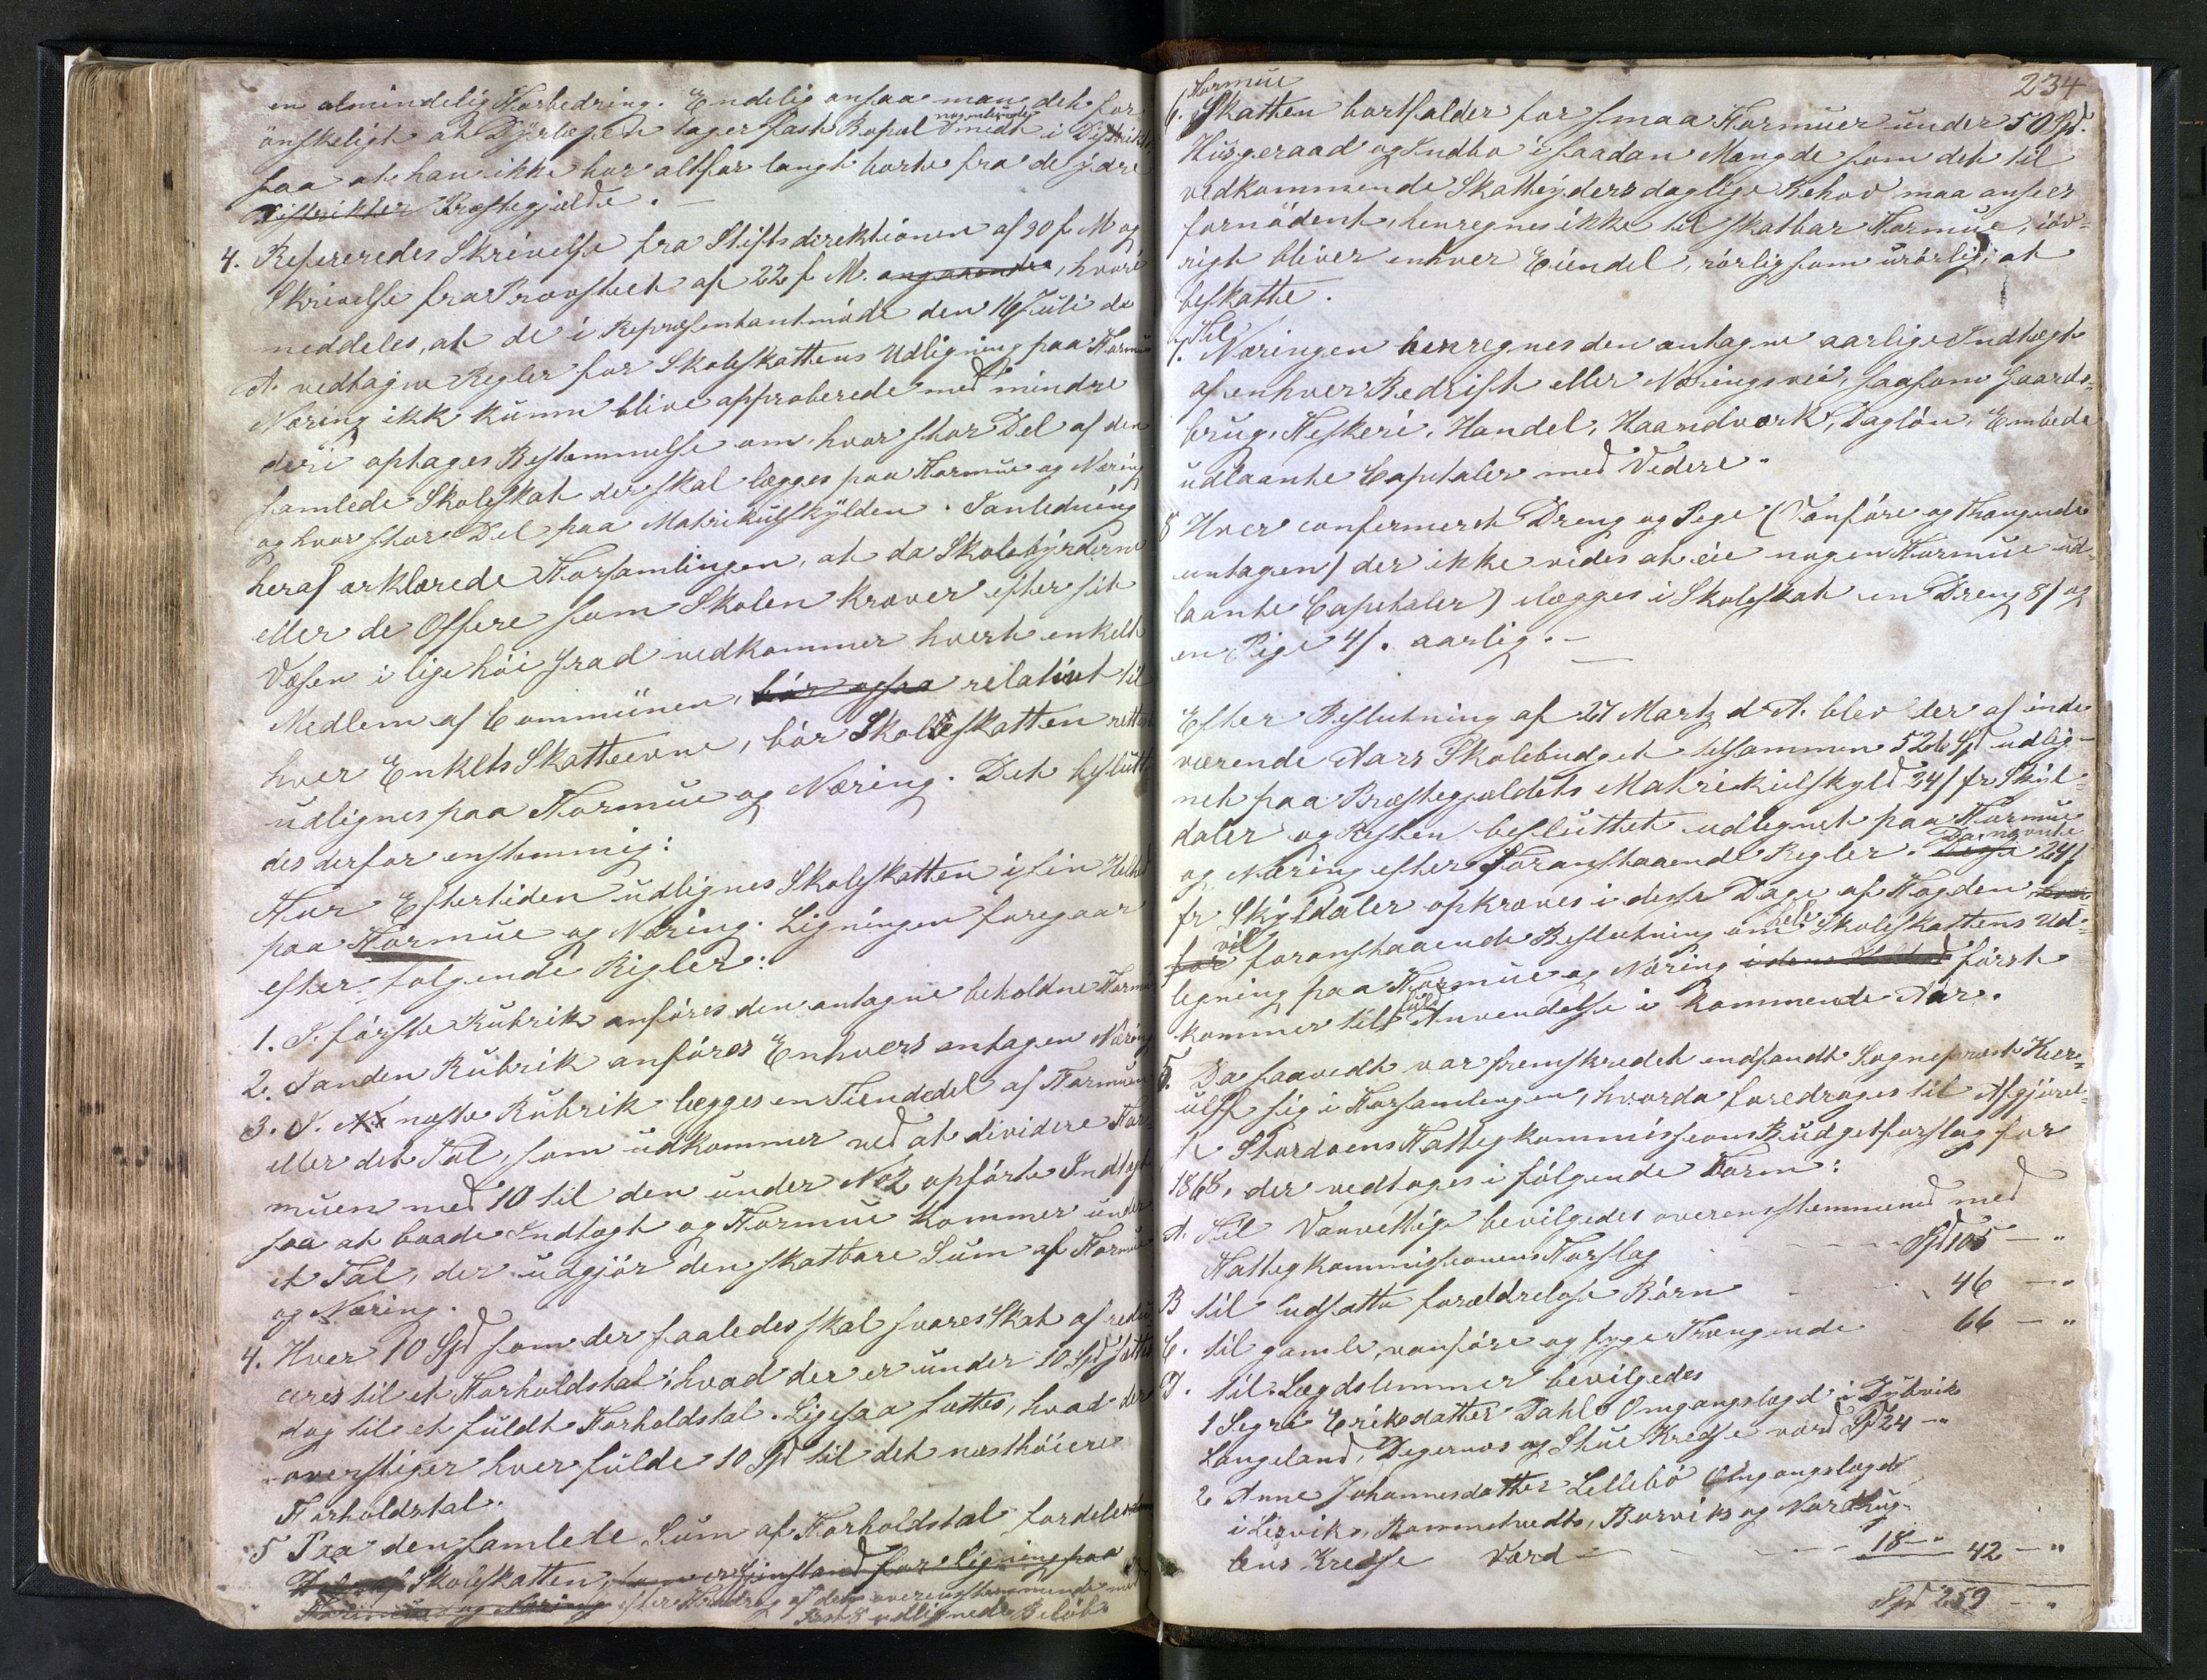 en almindelig Forbedring. Endelig ansaa man det for
önskeligt at Dyrlægen tager fast Bopæl nogenlunde midt i Distriktet
saa at han ikke bor altfor langt borte fra de ydre
Distrikter Præstegjælde. —
4. Refereredes Skrivelse fra Stiftsdirektionen af 30 f. M og
Skrivelse fra Provstiet af 22 f. M. angaaende, hvori
meddeles, at de i Repræsentantmöde den 16 Juli d.
A. vedtagne Regler for Skoleskattens Udligning paa Formue
Næring ikk kunne blive approberede med mindre
deri optages Bestemmelse om, hvor stor Del af den
samlede Skoleskat der skal lægges paa Formue og Næring
og hvor stor Del paa Matrikulskylden. I anledning
heraf erklærede Forsamlingen, at da Skolebyrderne
eller de Offere som Skolen kræver efter sit
Væsen i lige höi Grad vedkommer hvert enkelt
Medlem af Communen, bör ogsaa relativt til
hver Enkelts Skatteevne, bör Skoleskatten rettest
udlignes paa Formue og Næring. Det beslutte-
des derfor enstemmig:
For Eftertiden udlignes Skoleskatten i sin Helhed
paa Formue og Næring. Ligningen foregaar
efter fölgende Regler:
1. I. förste Rubrik anföres den antagne beholdne Formue
2. I anden Rubrik anföres Enhvers antagen Næring
3. I. næste Rubrik lægges en Tiendedel af Formuen
eller det Tal, som udkommer ved at dividere For-
muen med 10 til den under No 2 opförte Indtægt
saa at baade Indtægt og Formue kommer under
et Tal, der udgjör den skatbare Sum af Formue
og Næring.
4. Hver 10 Spd som der saaledes skal svares Skat af redu-
ceres til et Forholdstal; hvad der er under 10 Spd sættes
dog til et fuldt Forholdstal. Ligesaa sættes, hvad der
overstiger hver fulde 10 Spd til det næsthöiere
Forholdstal.
5 Paa den samlede Sum af Forholdstal fordeles den
Del af Skoleskatten, som er Gjenstand for Ligning paa
Formue og Næring efter Fradrag af det overensstemmende med
Post 8 udlignede Belöb.
234
6. Formue
Skatten bortfalder for smaa Formuer under 50 Spd.
Husgeraad og Indbo i saadan Mængde som det til
vedkommende Skatteyders daglige Behov maa ansees
fornödent, henregnes ikke til skatbar Formue, iöv-
rigt bliver enhver Eiendel, rörlig som urörlig, at
beskatte.
7. Til Næringen henregnes den antagne aarlige Indtægt
af enhver Bedrift eller Næringsvei, saasom Gaards-
brug, Fiskeri, Handel, Haandværk, Daglön, Embede
udlaante Capitaler med Videre.
8 Hver confermeret Dreng og Pige (Vanföre og Trængende
untagen) der ikke vides at eie nogen Formue ud-
laante Capitaler) ilægges i Skoleskat en Dreng 8/ og
en Pige 4/. aarlig. —
Efter Beslutning af 27 Martz d. A. blev der af inde
værende Aars Skolebudget tilsammen 526 Spd udlig-
net paa Præstegjældets Matrikulskyld 24/ pr Skyl-
daler og Resten besluttet udlignet paa Formue
og Næring efter Foranstaaende Regler. Disse Da nævnte 24/
pr Skyldaler opkræves i disse Dage af Fogden,
for vil foranstaaende Beslutning om hele Skoleskattens Ud-
ligning paa Formue og Næring i dens Helhed först
kommer til fuld Anvendelse i kommende Aar.
5. Da saavidt var fremskredet indfandt Sogneprest Kier-
ulff sig i Forsamlingen, hvorda foredroges til Afgjörel-
se Stordöens Fattigkommissions Budgetforslag for
1868, der vedtoges i fölgende Form:
A. Til Vanvittige bevilgedes overensstemmende med
Fattigkommissionens Forslag - - - Spd 105 — "
B til udsatte forældrelöse Börn - - 46 — "
C. til gamle, vanföre og syge Trængende 66 — "
D. til Lægdslemmer bevilgedes
1 Segri Eriksdatter Dahl Omgangslægd i Dybvik
Langeland, Digernæs og Stue Kredse værd Spd 24 — "
2 Anne Johannesdatter Lillebö Omgangslægd
i Liervik, Rommetvedt, Borviks og Nordhug-
lens Kredse Værd - - - 18 — " 42 — "
Spd 259 — "